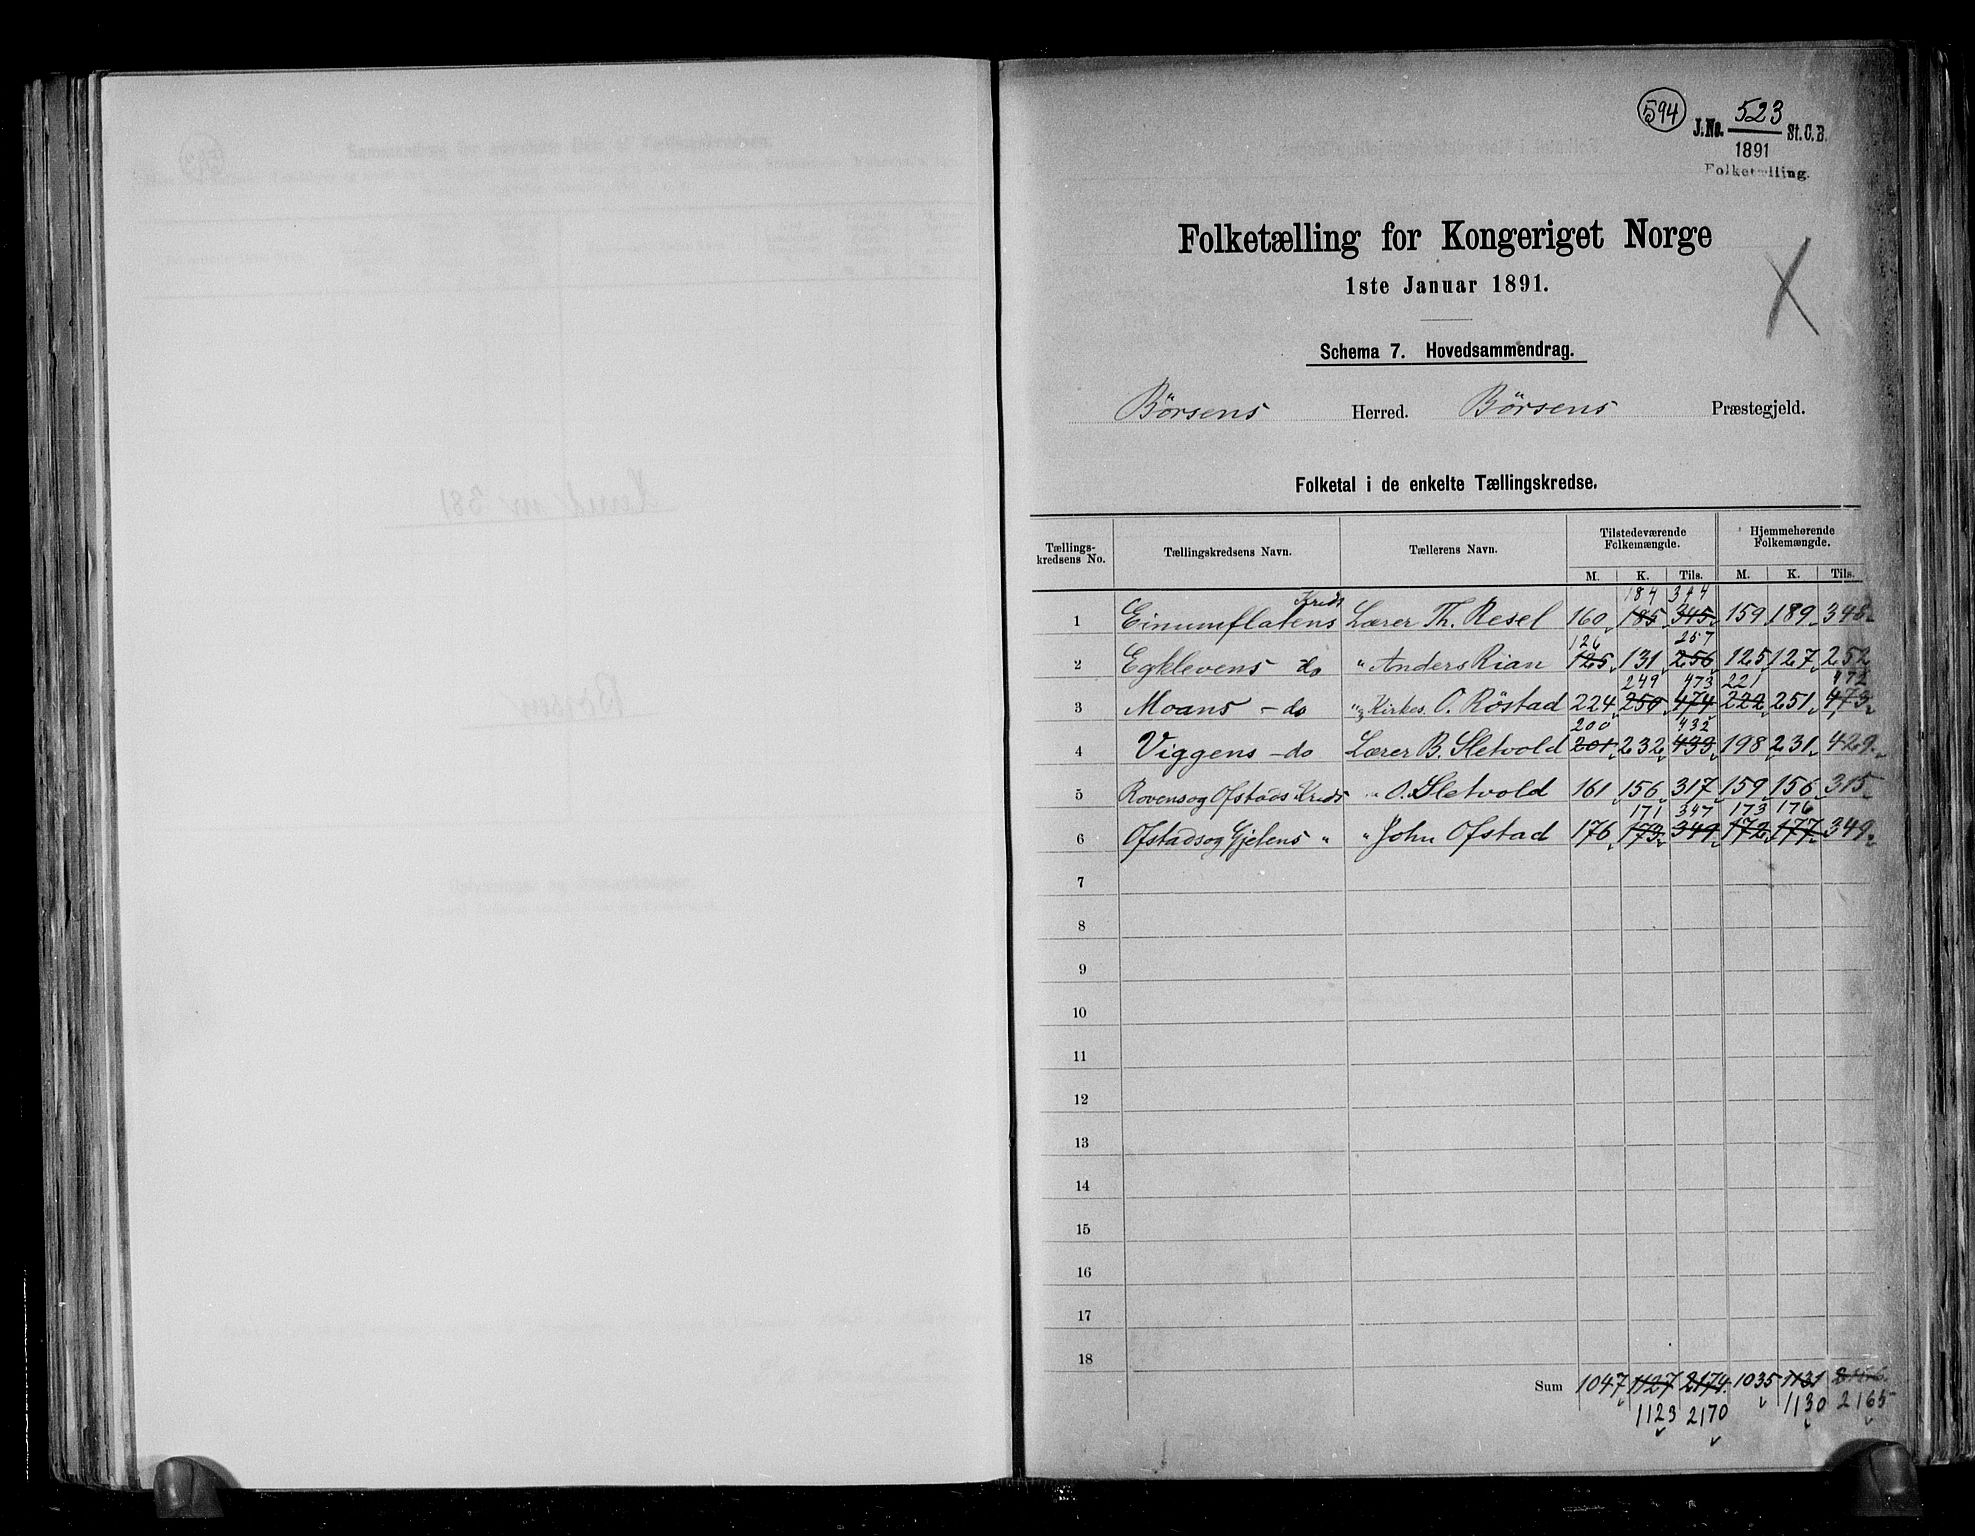 594
J.No. 523 St.C.B.
1891
Folketælling.
Folketælling for Kongeriget Norge
1ste Januar 1891.
Schema 7. Hovedsammendrag.
Börsens Herred. Börsens Præstegjeld.
Folketal i de enkelte Tællingskredse.
Tællings-kredsens No. Tællingskredsens Navn. Tællerens Navn. Tilstedeværende Folkemængde. Hjemmehørende Folkemængde.
M. K. Tils. M. K. Tils.
184 344
1 Einumflatens Kreds Lærer Th. Resel 160 185 345 159 189 348
126 257
2 Egklevens - do " Anders Rian 125 131 256 125 127 252
249 473 221 472
3 Moans - do " Kirkes. O. Röstad 224 250 474 222 251 473
200 432
4 Viggens - do Lærer B. Sletvold 201 232 433 198 231 429
5 Rovens og Ofstads Kreds " O. Sletvold 161 156 317 159 156 315
171 347 173 176
6 Ofstads og Gjelens " " John Ofstad 176 173 349 172 177 349
7
8
9
10
11
12
13
14
15
16
17
18
Sum 1047 1127 2174 1035 1131
1123 2170 1130 2165